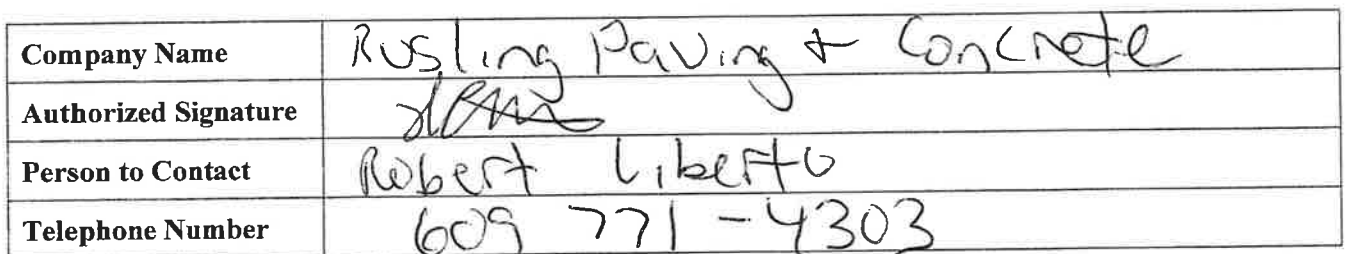 Company Name Rusling Paving + Concrete
Authorized Signature
Person to Contact Robert Liberto
Telephone Number 609 771-4303